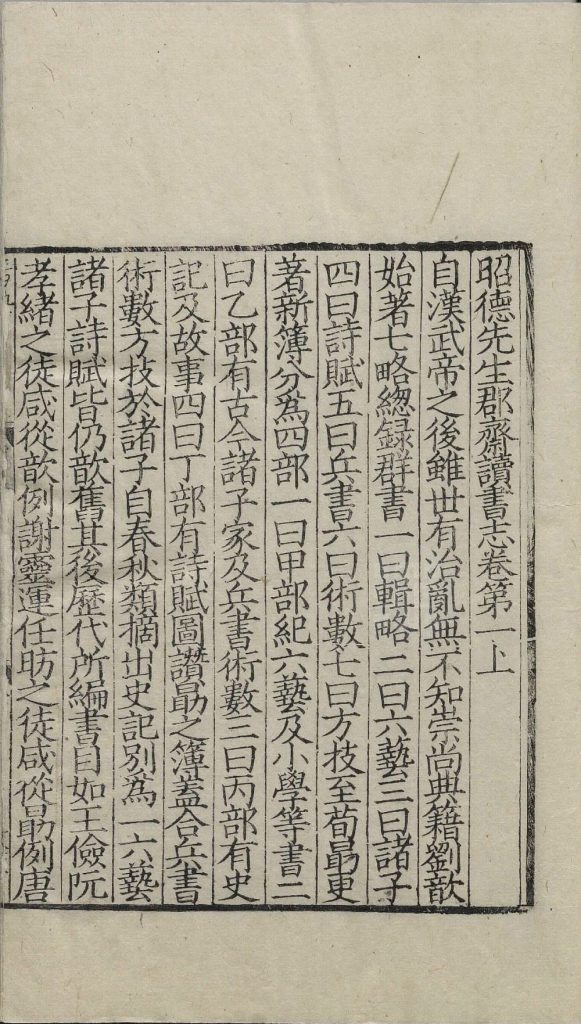 昭德先生郡齋讀書志卷第一上
自漢武帝之後雖世有治亂無不知崇尚典籍劉歆
始著七略緫録群書一曰輯略二曰六藝三曰諸子
四曰詩賦五曰兵書六曰術數七曰方技至荀勗更
著新簿分爲四部一曰甲部紀六藝及小學等書二
曰乙部有古今諸子家及兵書術數三曰丙部有史
記及故事四曰丁部有詩賦圖讃勗之簿蓋合兵書
術數方技於諸子自春秋類摘出史記别爲一六藝
諸子詩賦皆仍歆舊其後歷代所編書目如王儉阮
孝緒之徒咸從歆例謝靈運任昉之徒咸從勗例唐